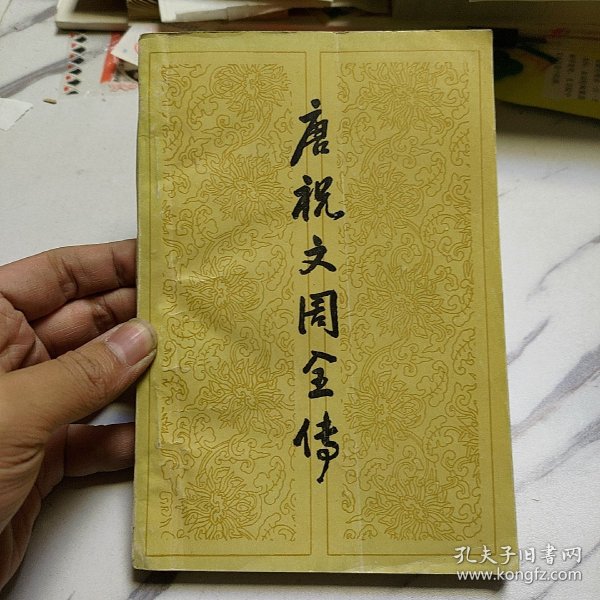 唐祝文周全传
孔夫子旧书网
www.kongfz.com